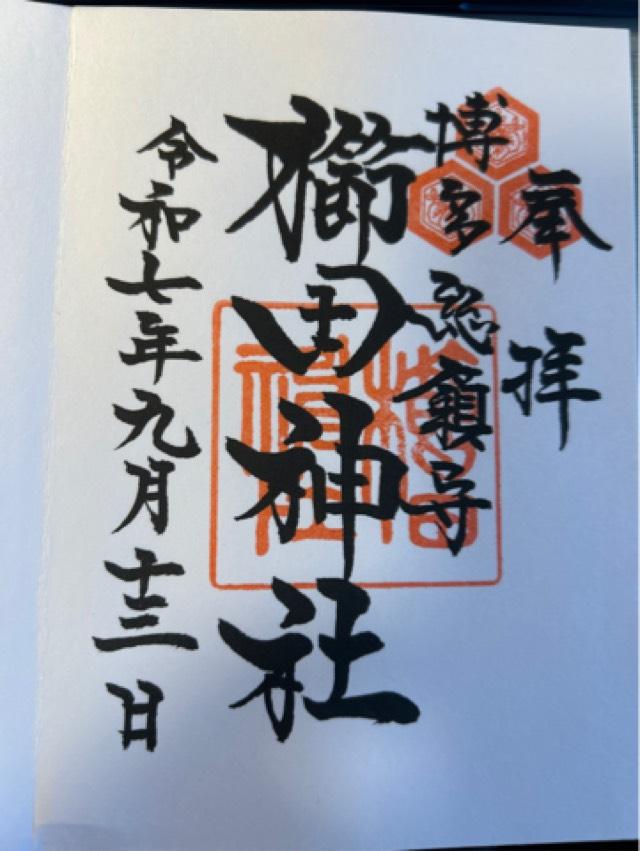 奉拝
博多総鎮守
櫛田神社
令和七年九月十三日